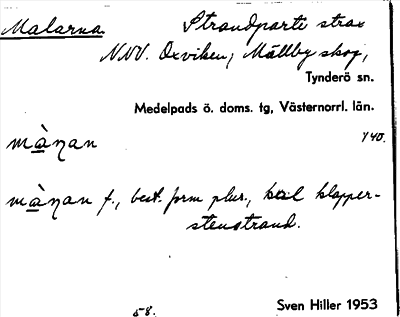 Malarna. Strandparti strax
NNV. Oxviken, Mällby skog,
Tynderö sn.
Medelpads ö. doms. tg, Västernorrl. län.
màṇan Y40.
màṇan f., best. form plur., kal klapper-
stenstrand.
58. Sven Hiller 1953